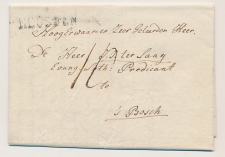 HEUSDEN
Hoog Eerwaarde Zeer Geleerden Heer
De Heer J. D. ter Laag
Evang. Luth: Predicant
te
's Bosch